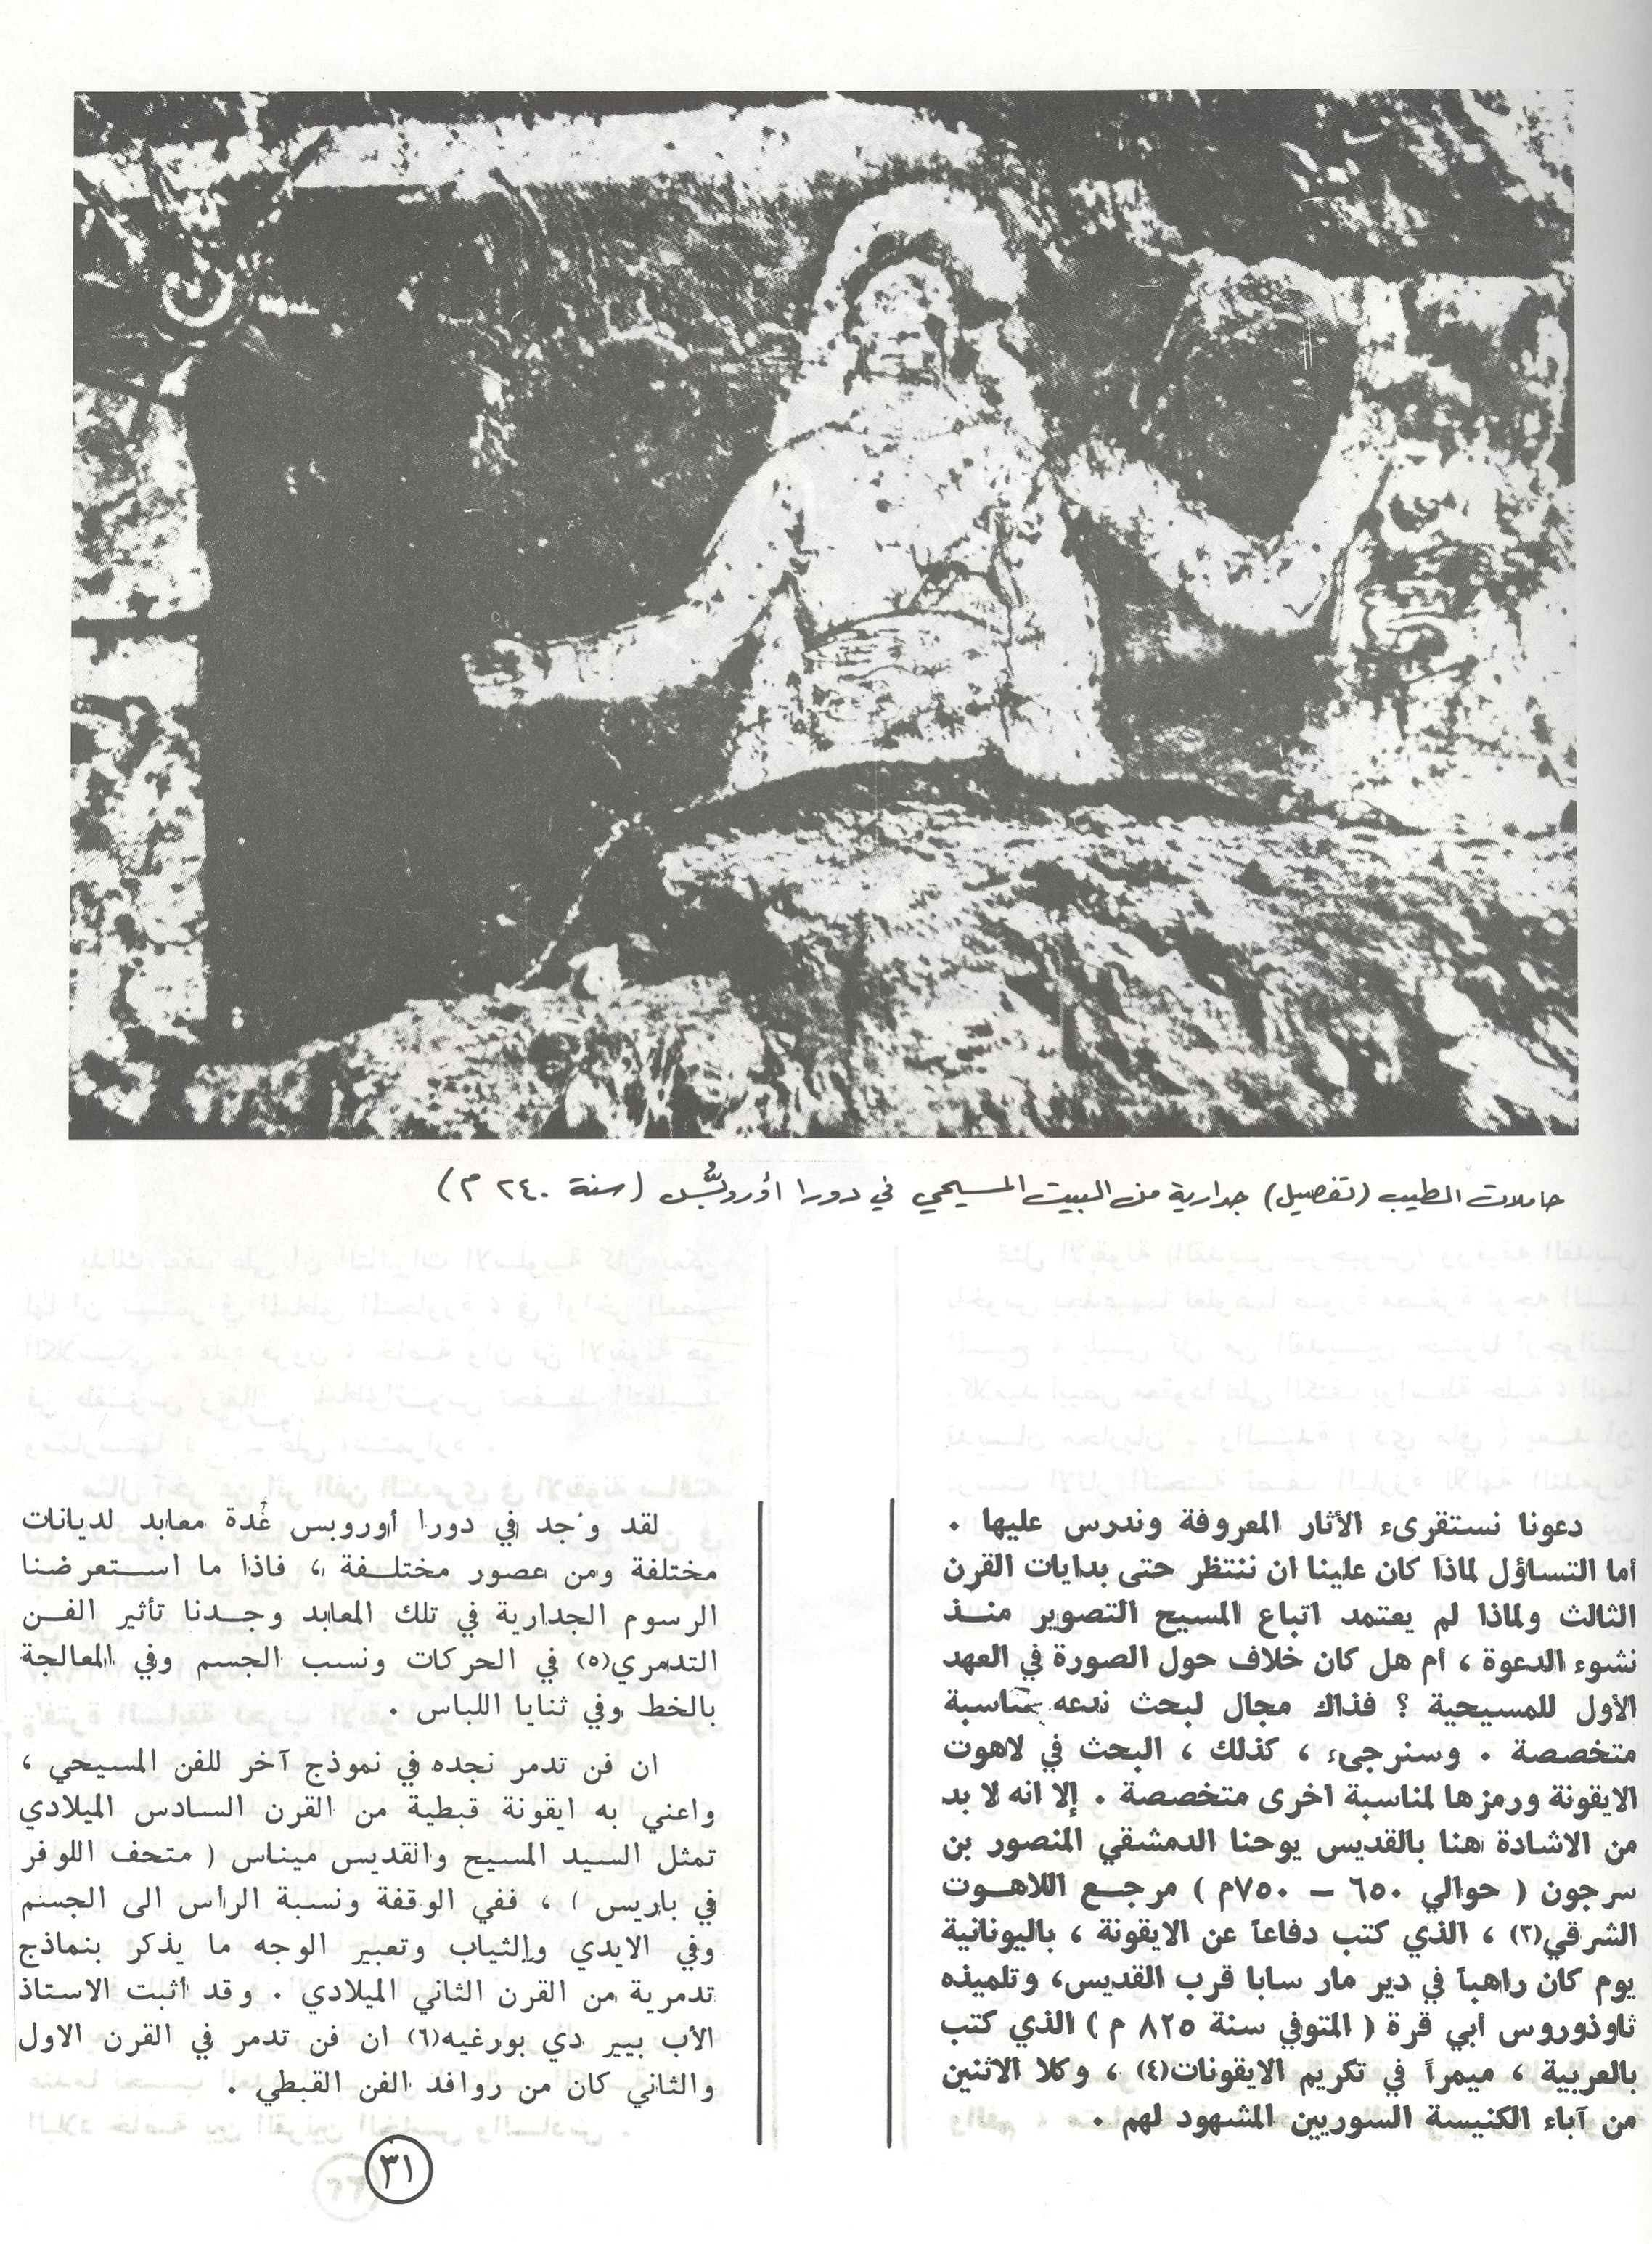 حاملات الطيب (تفصيل) جدارية من البيت المسيحي في دورا أوروبُّس (سنة ٢٤٠ م)
دعونا نستقرىء الأثار المعروفة وندرس عليها .
أما التساؤل لماذا كان علينا ان ننتظر حتى بدايات القرن
الثالث ولماذا لم يعتمد اتباع المسيح التصوير منــذ
نشوء الدعوة ، أم هل كان خلاف حول الصورة في العهد
الأول للمسيحية ؟ فذاك مجال لبحث ندعه مناسبة
متخصصة . وسنرجىء ، كذلك ، البحث في لاهوت
الايقونة ورمزها لمناسبة اخرى متخصصة . إلا انه لا بد
من الاشادة هنا بالقديس يوحنا الدمشقي المنصور بن
سرجون ( حوالي ٦٥٠ – ٧٥٠م ) مرجــع اللاهــوت
الشرقي(٣) ، الذي كتب دفاعاً عن الايقونة ، باليونانية
يوم كان راهباً في دير مار سابا قرب القديس، وتلميذه
ثاوذوروس أبي قرة ( المتوفي سنة ٨٢٥ م ) الذي كتب
بالعربية ، ميمراً في تكريم الايقونات(٤) ، وكلا الاثنين
من آباء الكنيسة السوريين المشهود لهم .
لقد وُجد في دورا أوروبس عُدة معابد لديانات
مختلفة ومن عصور مختلــفة ، فاذا ما استــعرضنا
الرسوم الجدارية في تلك المعابد وجــدنا تأثير الفــن
التدمري(٥) في الحركات ونسب الجسم وفي المعالجة
بالخط وفي ثنايا اللباس .
ان فن تدمر نجده في نموذج آخر للفن المسيحي ،
واعني به ايقونة قبطية من القرن السادس الميلادي
تمثل السيد المسيح والقديس ميناس ( متحف اللوفر
في باريس ) ، ففي الوقفة ونسبة الرأس الى الجسم
وفي الايدي والثياب وتعبير الوجه ما يذكر بنماذج
تدمرية من القرن الثاني الميلادي . وقد أثبت الاستاذ
الأب بيير دي بورغيه(٦) ان فن تدمر في القرن الاول
والثاني كان من روافد الفن القبطي .
٣١